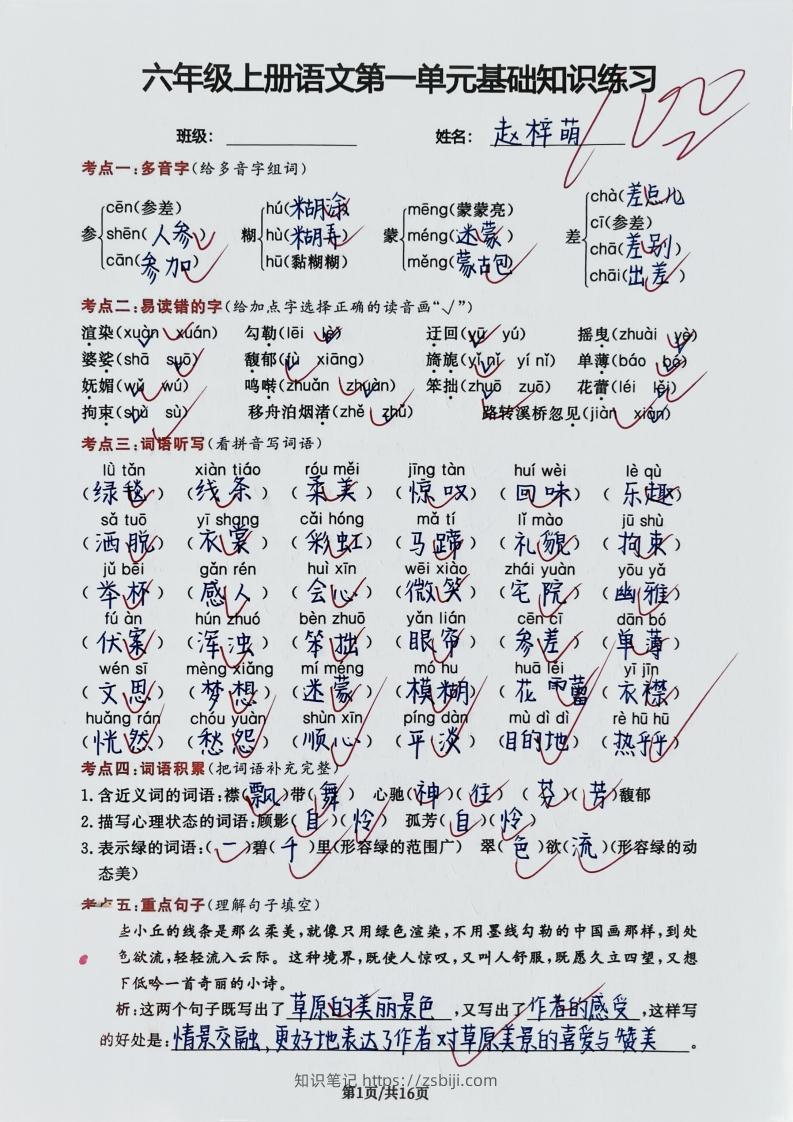 六年级上册语文第一单元基础知识练习
100
班级: 姓名: 赵梓萌
考点一:多音字(给多音字组词)
参 cēn(参差) shēn(人参) cān(参加)
糊 hú(糊涂) hù(糊弄) hū(黏糊糊)
蒙 mēng(蒙蒙亮) méng(迷蒙) měng(蒙古包)
差 chà(差点儿) cī(参差) chā(差别) chāi(出差)
考点二:易读错的字(给加点字选择正确的读音画“√”)
渲染(xuàn xuán) 勾勒(lēi lè) 迂回(yū yú) 摇曳(zhuài yè)
婆娑(shā suō) 馥郁(fù xiāng) 旖旎(yǐ nǐ yí nǐ) 单薄(báo bó)
妩媚(wǔ wú) 鸣啭(zhuǎn zhuàn) 笨拙(zhuō zuō) 花蕾(léi lěi)
拘束(shù sù) 移舟泊烟渚(zhě zhǔ) 路转溪桥忽见(jiàn xiàn)
考点三:词语听写(看拼音写词语)
lǜ tǎn xiàn tiáo róu měi jīng tàn huí wèi lè qù
(绿毯) (线条) (柔美) (惊叹) (回味) (乐趣)
sǎ tuō yī shang cǎi hóng mǎ tí lǐ mào jū shù
(洒脱) (衣裳) (彩虹) (马蹄) (礼貌) (拘束)
jǔ bēi gǎn rén huì xīn wēi xiào zhái yuàn yōu yǎ
(举杯) (感人) (会心) (微笑) (宅院) (幽雅)
fú àn hún zhuó bèn zhuō yǎn lián cēn cī dān bó
(伏案) (浑浊) (笨拙) (眼帘) (参差) (单薄)
wén sī mèng xiǎng mí méng mó hu huā lěi yī jīn
(文思) (梦想) (迷蒙) (模糊) (花蕾) (衣襟)
huǎng rán chóu yuàn shùn xīn píng dàn mù dì dì rè hū hū
(恍然) (愁怨) (顺心) (平淡) (目的地) (热乎乎)
考点四:词语积累(把词语补充完整)
1. 含近义词的词语:襟(飘)带(舞) 心驰(神)(往) (芬)(芳)馥郁
2. 描写心理状态的词语:顾影(自)(怜) 孤芳(自)(怜)
3. 表示绿的词语:(一)碧(千)里(形容绿的范围广) 翠(色)欲(流)(形容绿的动
态美)
考点五:重点句子(理解句子填空)
些小丘的线条是那么柔美,就像只用绿色渲染,不用墨线勾勒的中国画那样,到处
色欲流,轻轻流入云际。这种境界,既使人惊叹,又叫人舒服,既愿久立四望,又想
下低吟一首奇丽的小诗。
析:这两个句子既写出了草原的美丽景色,又写出了作者的感受,这样写
的好处是:情景交融,更好地表达了作者对草原美景的喜爱与赞美。
知识笔记 https://zsbiji.com
第1页/共16页